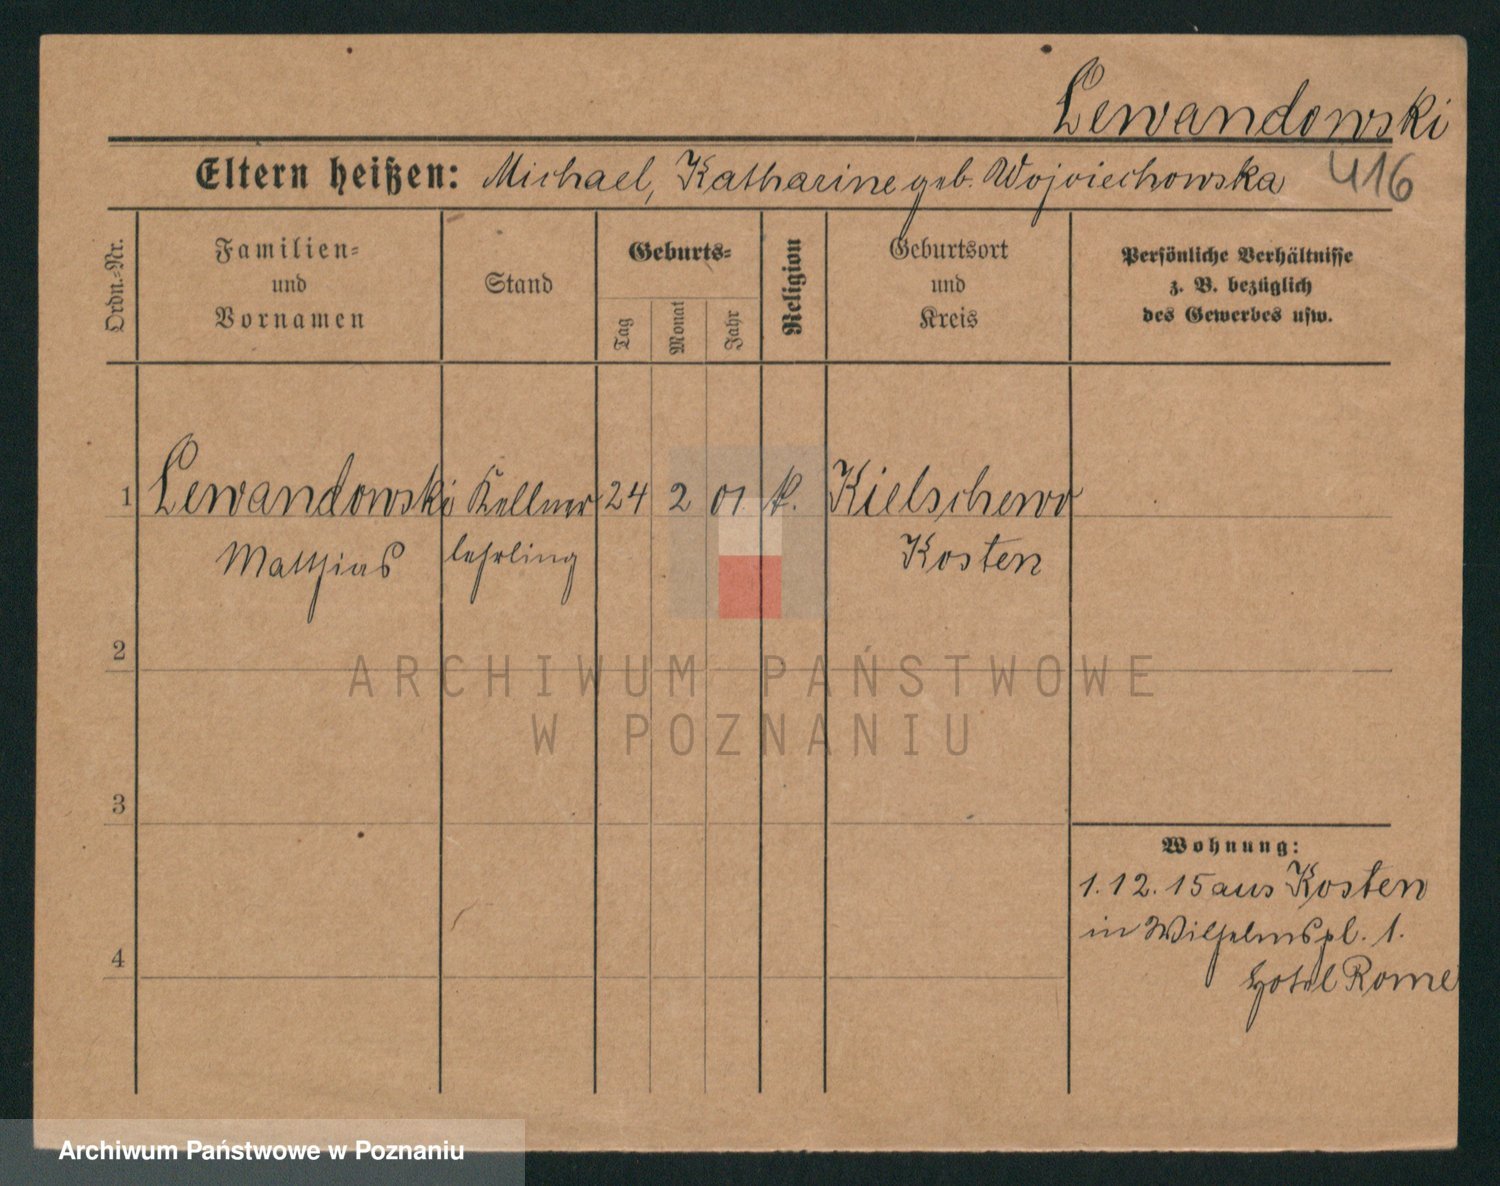 Lewandowski
Eltern heißen: Michael, Katharine geb. Wojciechowska 416
Ordn.-Nr.
Familien-
und
Vornamen
Stand
Geburts-
Tag
Monat
Jahr
Religion
Geburtsort
und
Kreis
Persönliche Verhältnisse
z. B. bezüglich
des Gewerbes usw.
1 Lewandowski Kellner 24 2 01. k. Kielschewo
Matthias lehrling Kosten
2
ARCHIWUM PAŃSTWOWE
W POZNANIU
3
Wohnung:
1.12.15 aus Kosten
in Wilhelmspl. 1.
4
Hotel Rome
Archiwum Państwowe w Poznaniu